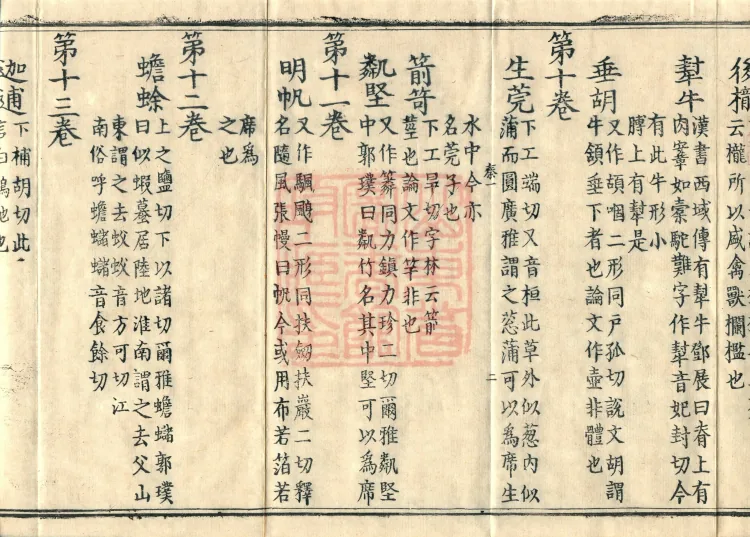 後檻 云櫳所以盛禽獸欄檻也
犎牛 漢書西域傳有犎牛鄧展曰脊上有
肉鞌如橐駝難字作犎音妃封切今
有此牛形小
髆上有犎是
垂胡 又作二形同戶孤切說文胡謂
牛頷垂下者也論文作壺非體也
第十卷
生莞 下工端切又音桓此草外似葱內似
蒲而圓廣雅謂之葱蒲可以為席生
秦 二
水中今亦
名莞子也
箭笴 下工旱切字林云箭
莖也論文作竿非也
粼堅 又作同力鎮力珍二切爾雅粼堅
中郭璞曰粼竹名其中堅可以為席
第十一卷
明帆 又作颿二形同扶劔扶嚴二切釋
名隨風張幔曰帆今或用布若箔若
席為
之也
第十二卷
蟾蜍 上之鹽切下以諸切爾雅蟾蠩郭璞
曰似蝦蟇居陸地淮南謂之去父山
東謂之去蚁蚁音方可切江
南俗呼蟾蠩蠩音食餘切
第十三卷
迦逋 下補胡切此
言白鴿地也